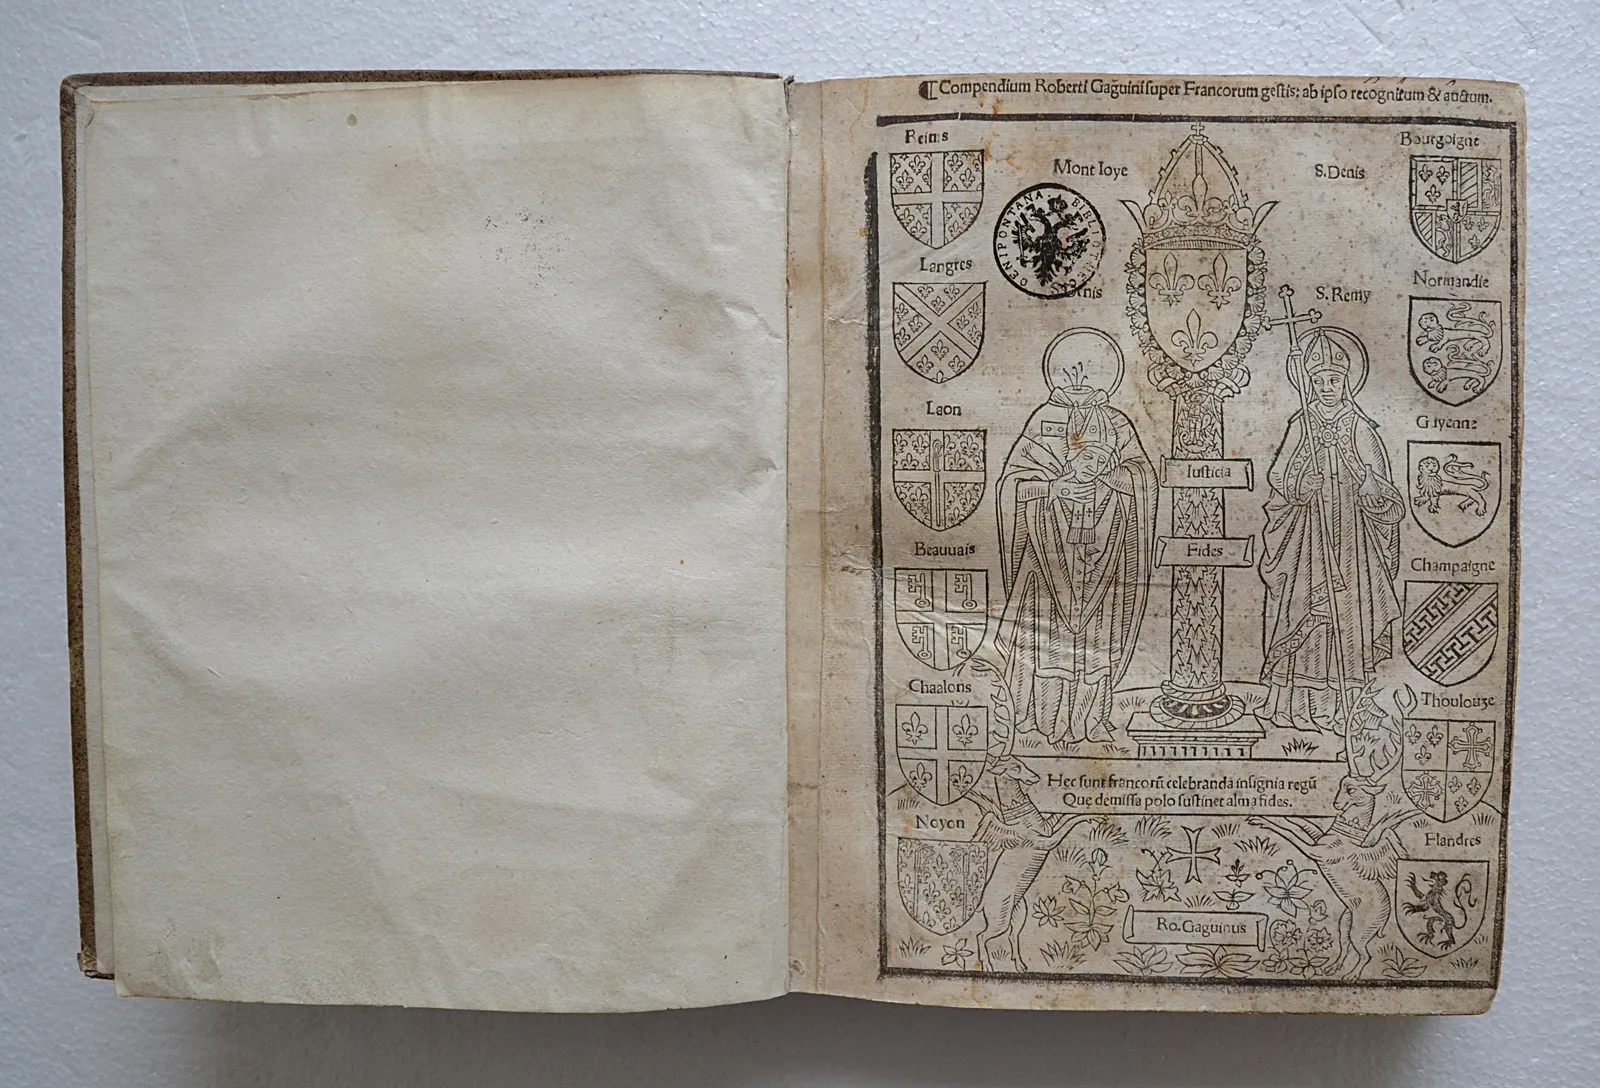 ¶Compendium Roberti Gaguini super Francorum gestis: ab ipso recognitum & auctum.
Reims
Mont Ioye
S. Denis
Bourgoigne
OENIPONTANA. BIBLIOTHECA
Langres
S. Denis
S. Remy
Normandie
Laon
Guyenne
Iusticia
Fides
Beauuais
Champaigne
Chaalons
Thoulouze
Hęc sunt francorũ celebranda insignia regũ
Quę demissa polo sustinet alma fides.
Noyon
Flandres
Ro. Gaguinus